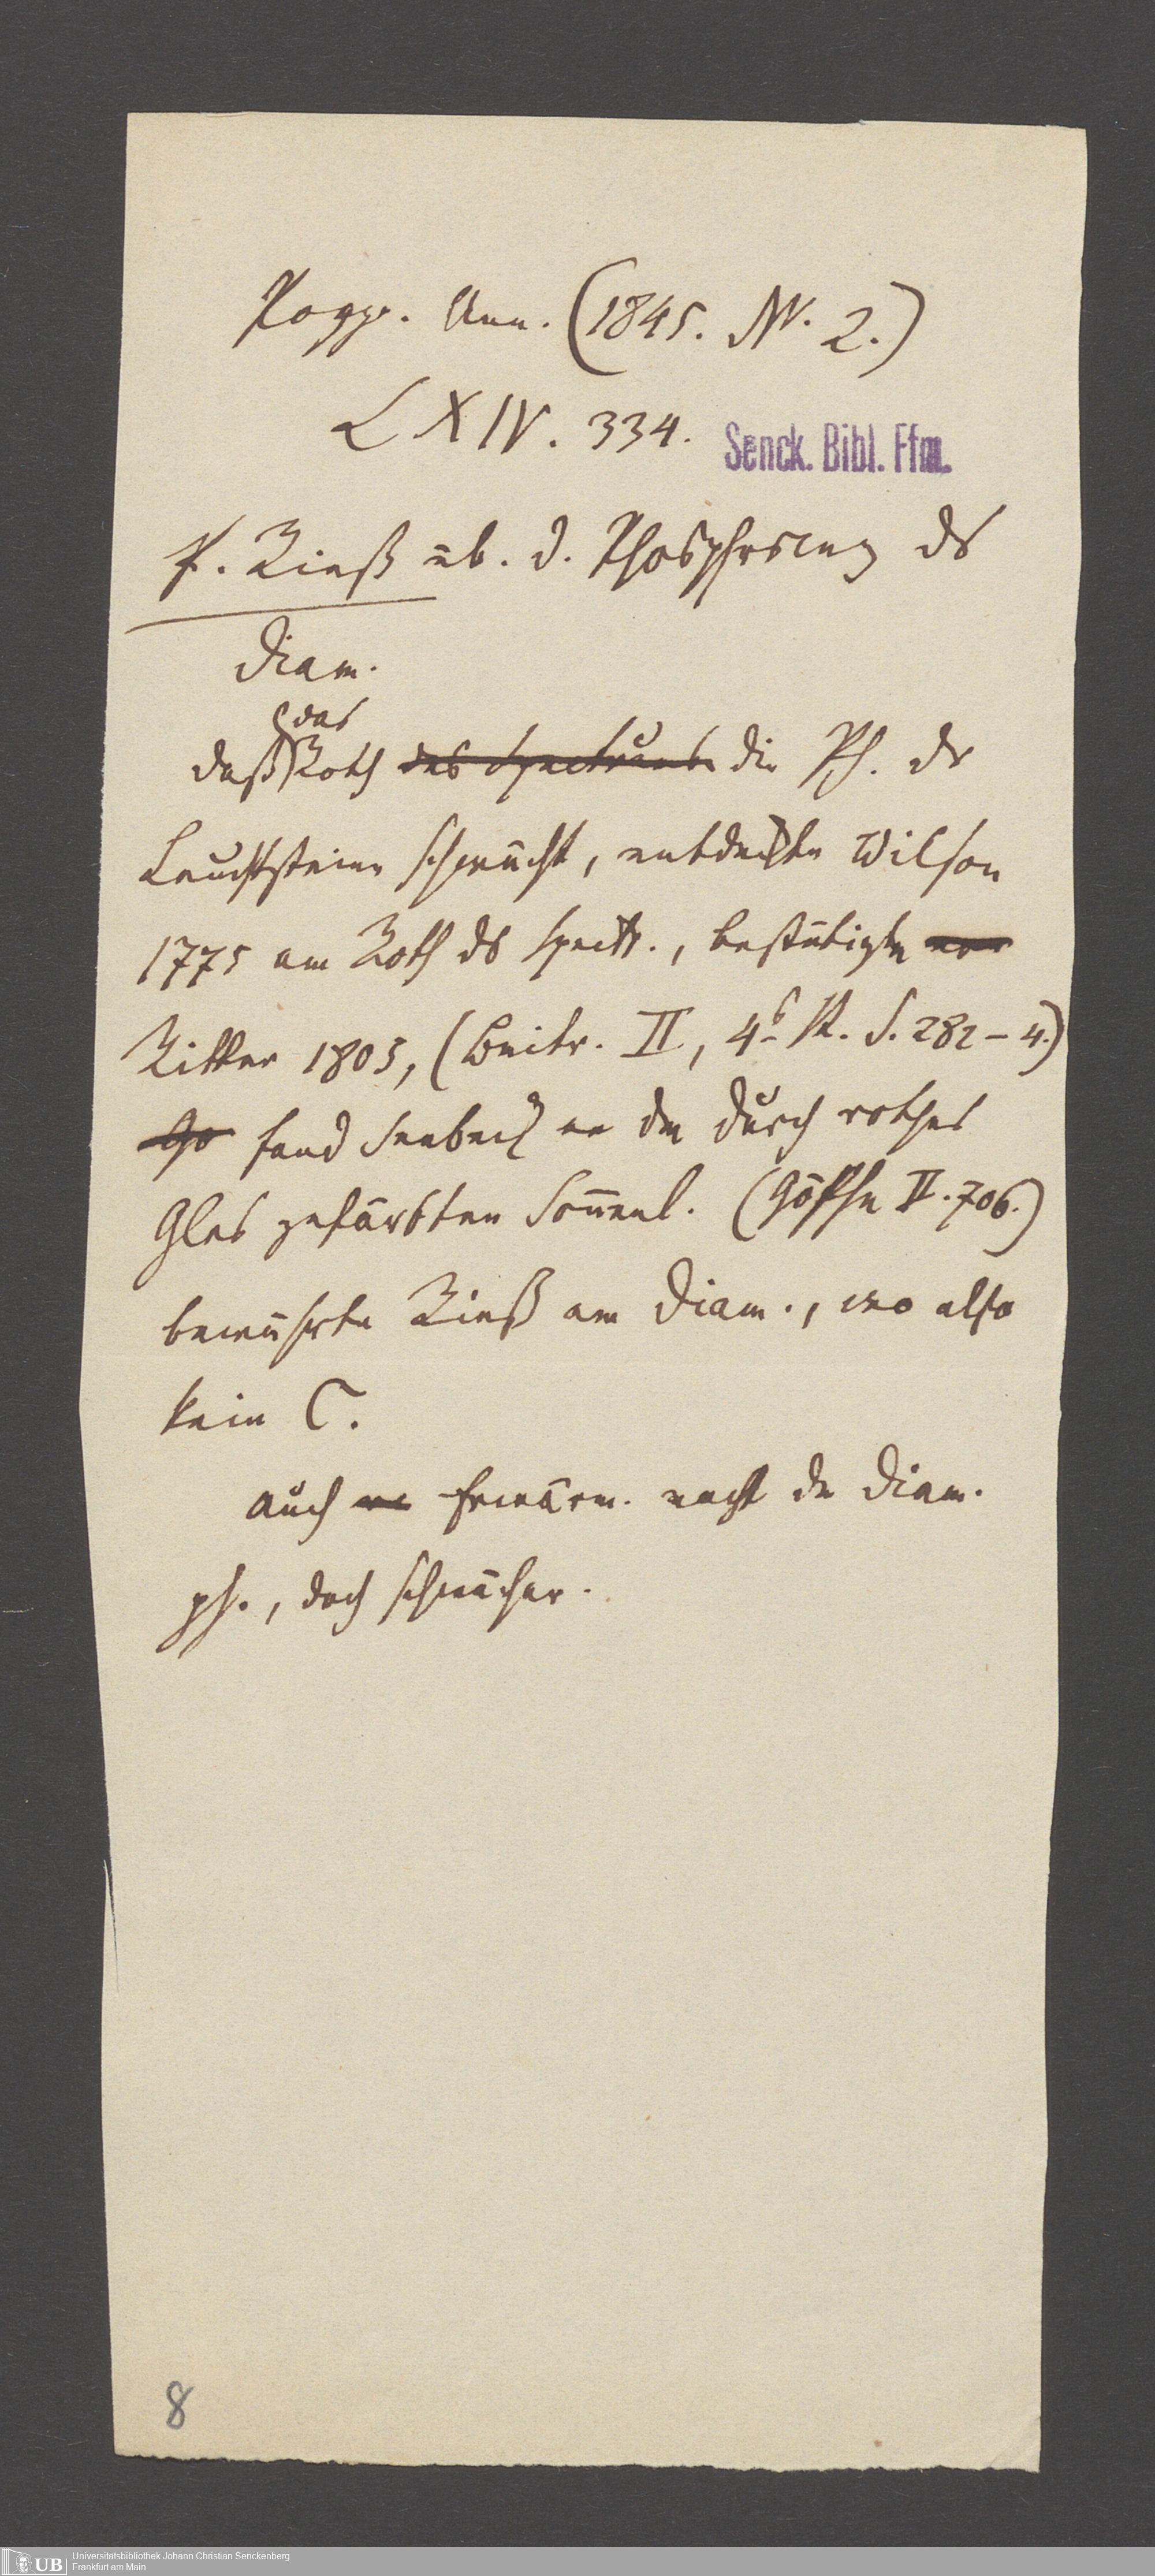 Pogg. Ann. (1845. Nr. 2.)
LXIV. 334.
Senck. Bibl. Ffm.
P. Rieß üb. d. Phosphrscenz ds
Diam.
das
daß Roth des Spectrums die Ph. dr
Leuchtsteine schwächt, entdeckte Wilson
1775 am Roth ds Spectr., bestätigte
Ritter 1805, (Beitr. II, 4s St. S. 282-4.)
So fand Seebeck an dem durch rothes
Glas gefärbten Sonnenl. (Göthe II. 706.)
bewährte Rieß am Diam., wo also
kein C.
Auch Erwärm. macht de Diam.
ph., doch schwächer.
8
UB
Universitätsbibliothek Johann Christian Senckenberg
Frankfurt am Main